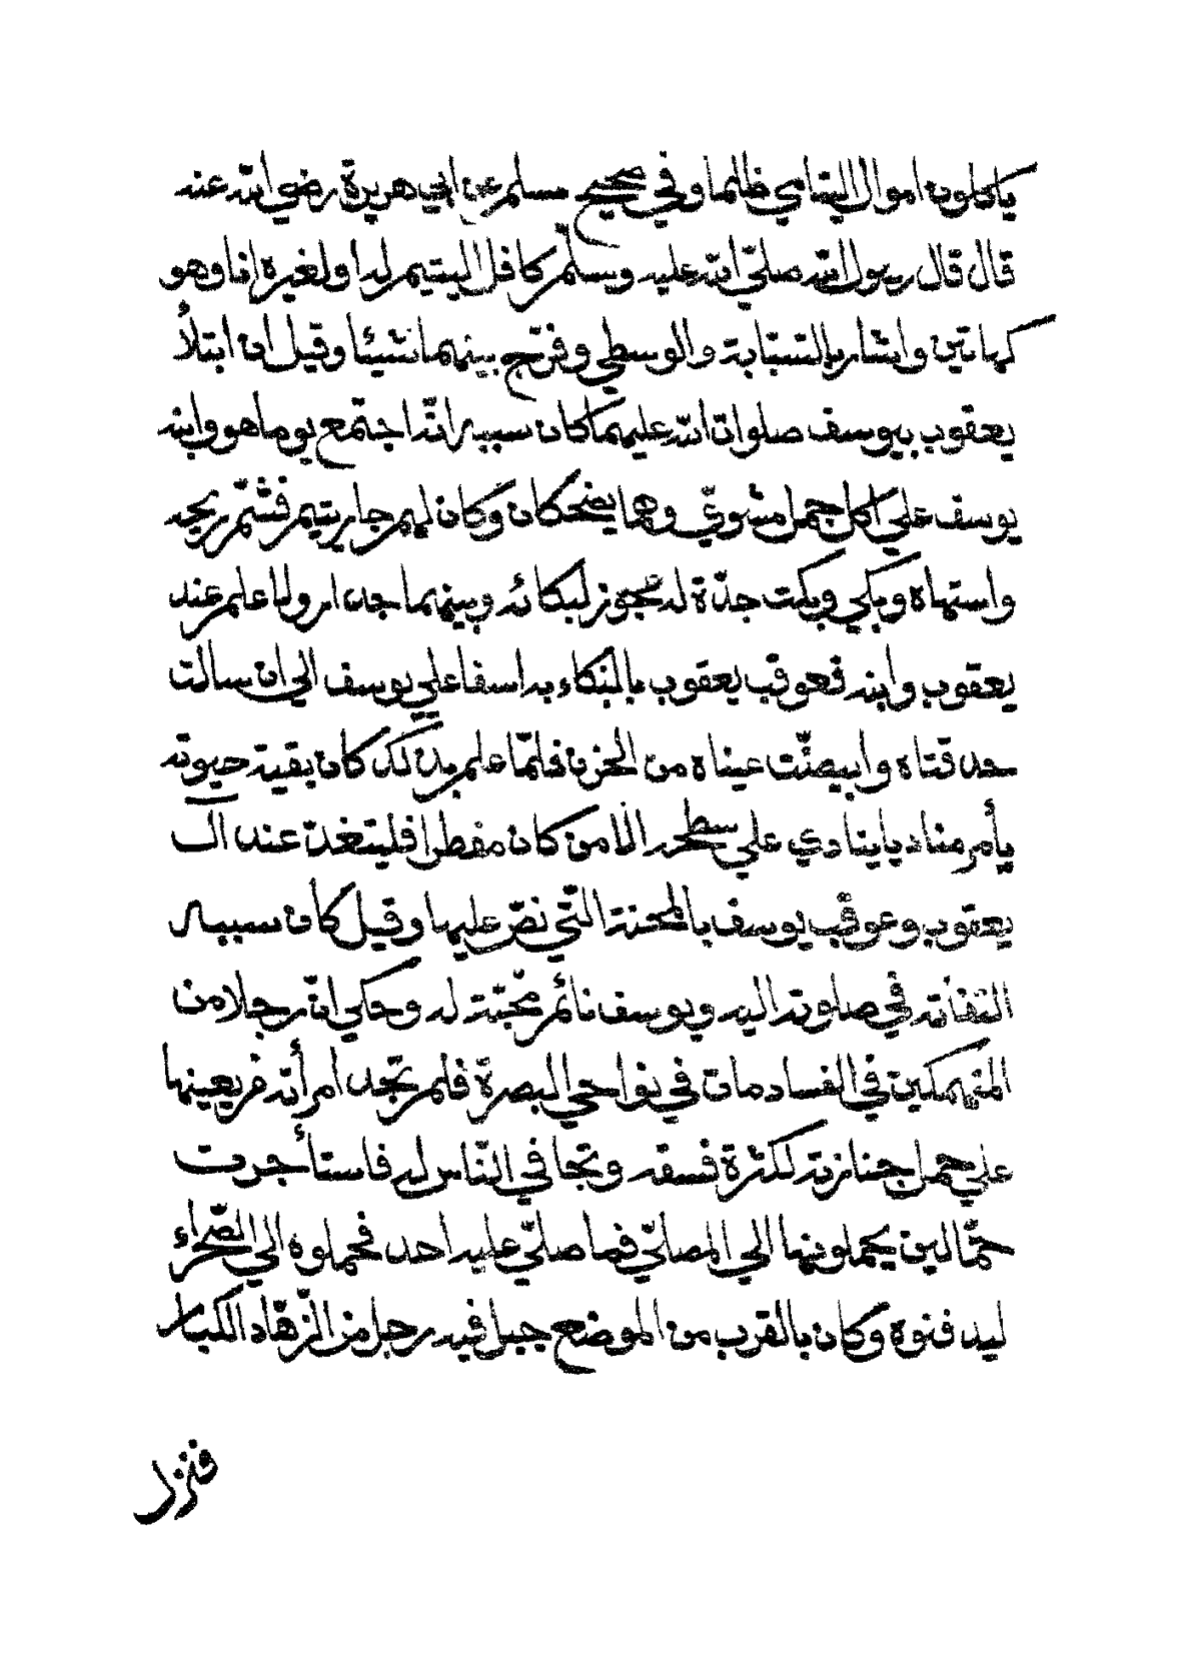 ياكلون اموال اليتامي ظلما وفي صحيح مسلم عن ابي هريرة رضي الله عنه
قال قال رسول الله صلّي الله عليه وسلّم كافل اليتيم له او لغيره انا وهو
كهاتين واشار بالسّبّابة والوسطي وفرّج بينهما شيئا وقيل ان ابتلأ
يعقوب بيوسف صلوات الله عليهما كان سببه انّه اجتمع يوما هو وابنه
يوسف علي اكل حمل مشويّ وهما يضحكان وكان لهم جار يتيم فشّم ريحه
واشتهاه وبكي وبكت جدّة له عجوز لبكائه وبينهما جدار ولا علم عند
يعقوب وابنه فعوقب يعقوب بالبكاء به اسفا علي يوسف الي ان سالت
حدقتاه وابيضّت عيناه من الحزن فلمّا علم بذلك كان بقية حيوته
يأمر مناديا ينادي علي سطحه الا من كان مفطرا فليتغدّ عند آل
يعقوب وعوقب يوسف بالمحنة الّتي نصّ عليها وقيل كان سببه
التفاته في صلوته اليه ويوسف نائم محبّة له وحكي انّ رجلا من
المنهمكين في الفساد مات في نواحي البصرة فلم تجد امرأته من يعينها
علي حمل جنازته لكثرة فسقه وتجافي النّاس له فاستأجرت
حمّالين يحملونها الي المصلّي فما صلّي عليه احد فحملوه الي الصّحراء
ليدفنوه وكان بالقرب من الموضع جبل فيه رجل من الزّهّاد الكبار
فنزل